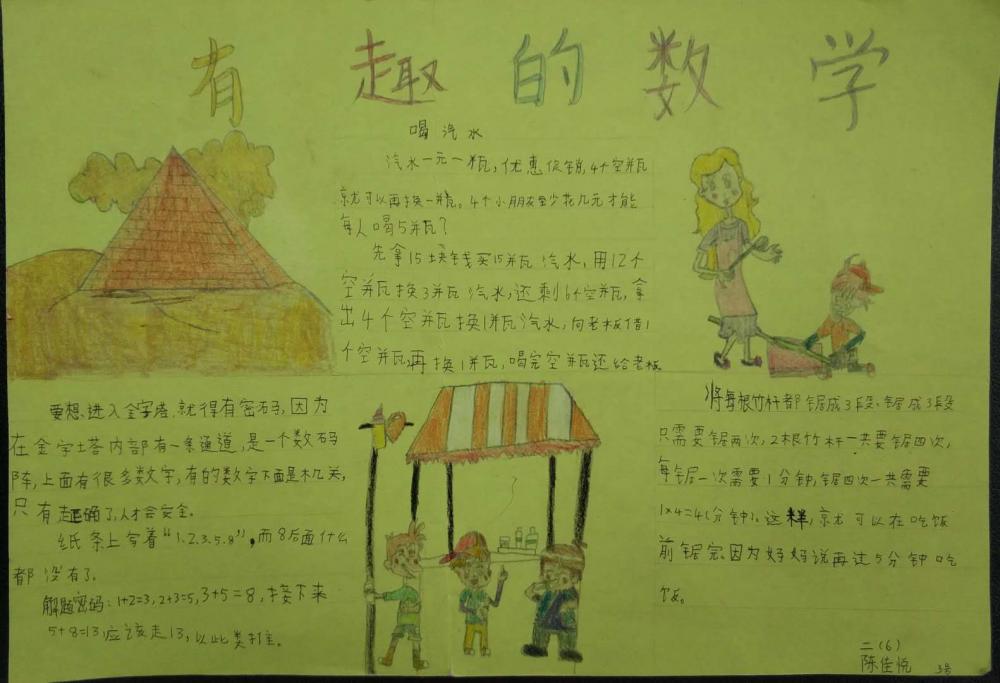 有趣的数学
喝汽水
汽水一元一瓶,优惠促销,4个空瓶
就可以再换一瓶。4个小朋友至少花几元才能
每人喝5瓶?
先拿15块钱买15瓶汽水,用12个
空瓶换3瓶汽水,还剩6个空瓶,拿
出4个空瓶换1瓶汽水,向老板借1
个空瓶再换1瓶,喝完空瓶还给老板
要想进入金字塔,就得有密码,因为
在金字塔内部有一条通道,是一个数码
阵,上面有很多数字,有的数字下面是机关,
只有走正确了,人才会安全。
纸条上写着“1.2.3.5.8”,而8后面什么
都没有了。
解题密码:1+2=3,2+3=5,3+5=8,接下来
5+8=13,应该走13,以此类推。
将每根竹杆都锯成3段,锯成3段
只需要锯两次,2根竹杆一共要锯四次,
每锯一次需要1分钟,锯四次一共需要
1×4=4(分钟)。这样,就可以在吃饭
前锯完。因为妈妈说再过5分钟吃
饭。
二(6)
陈佳悦 3号